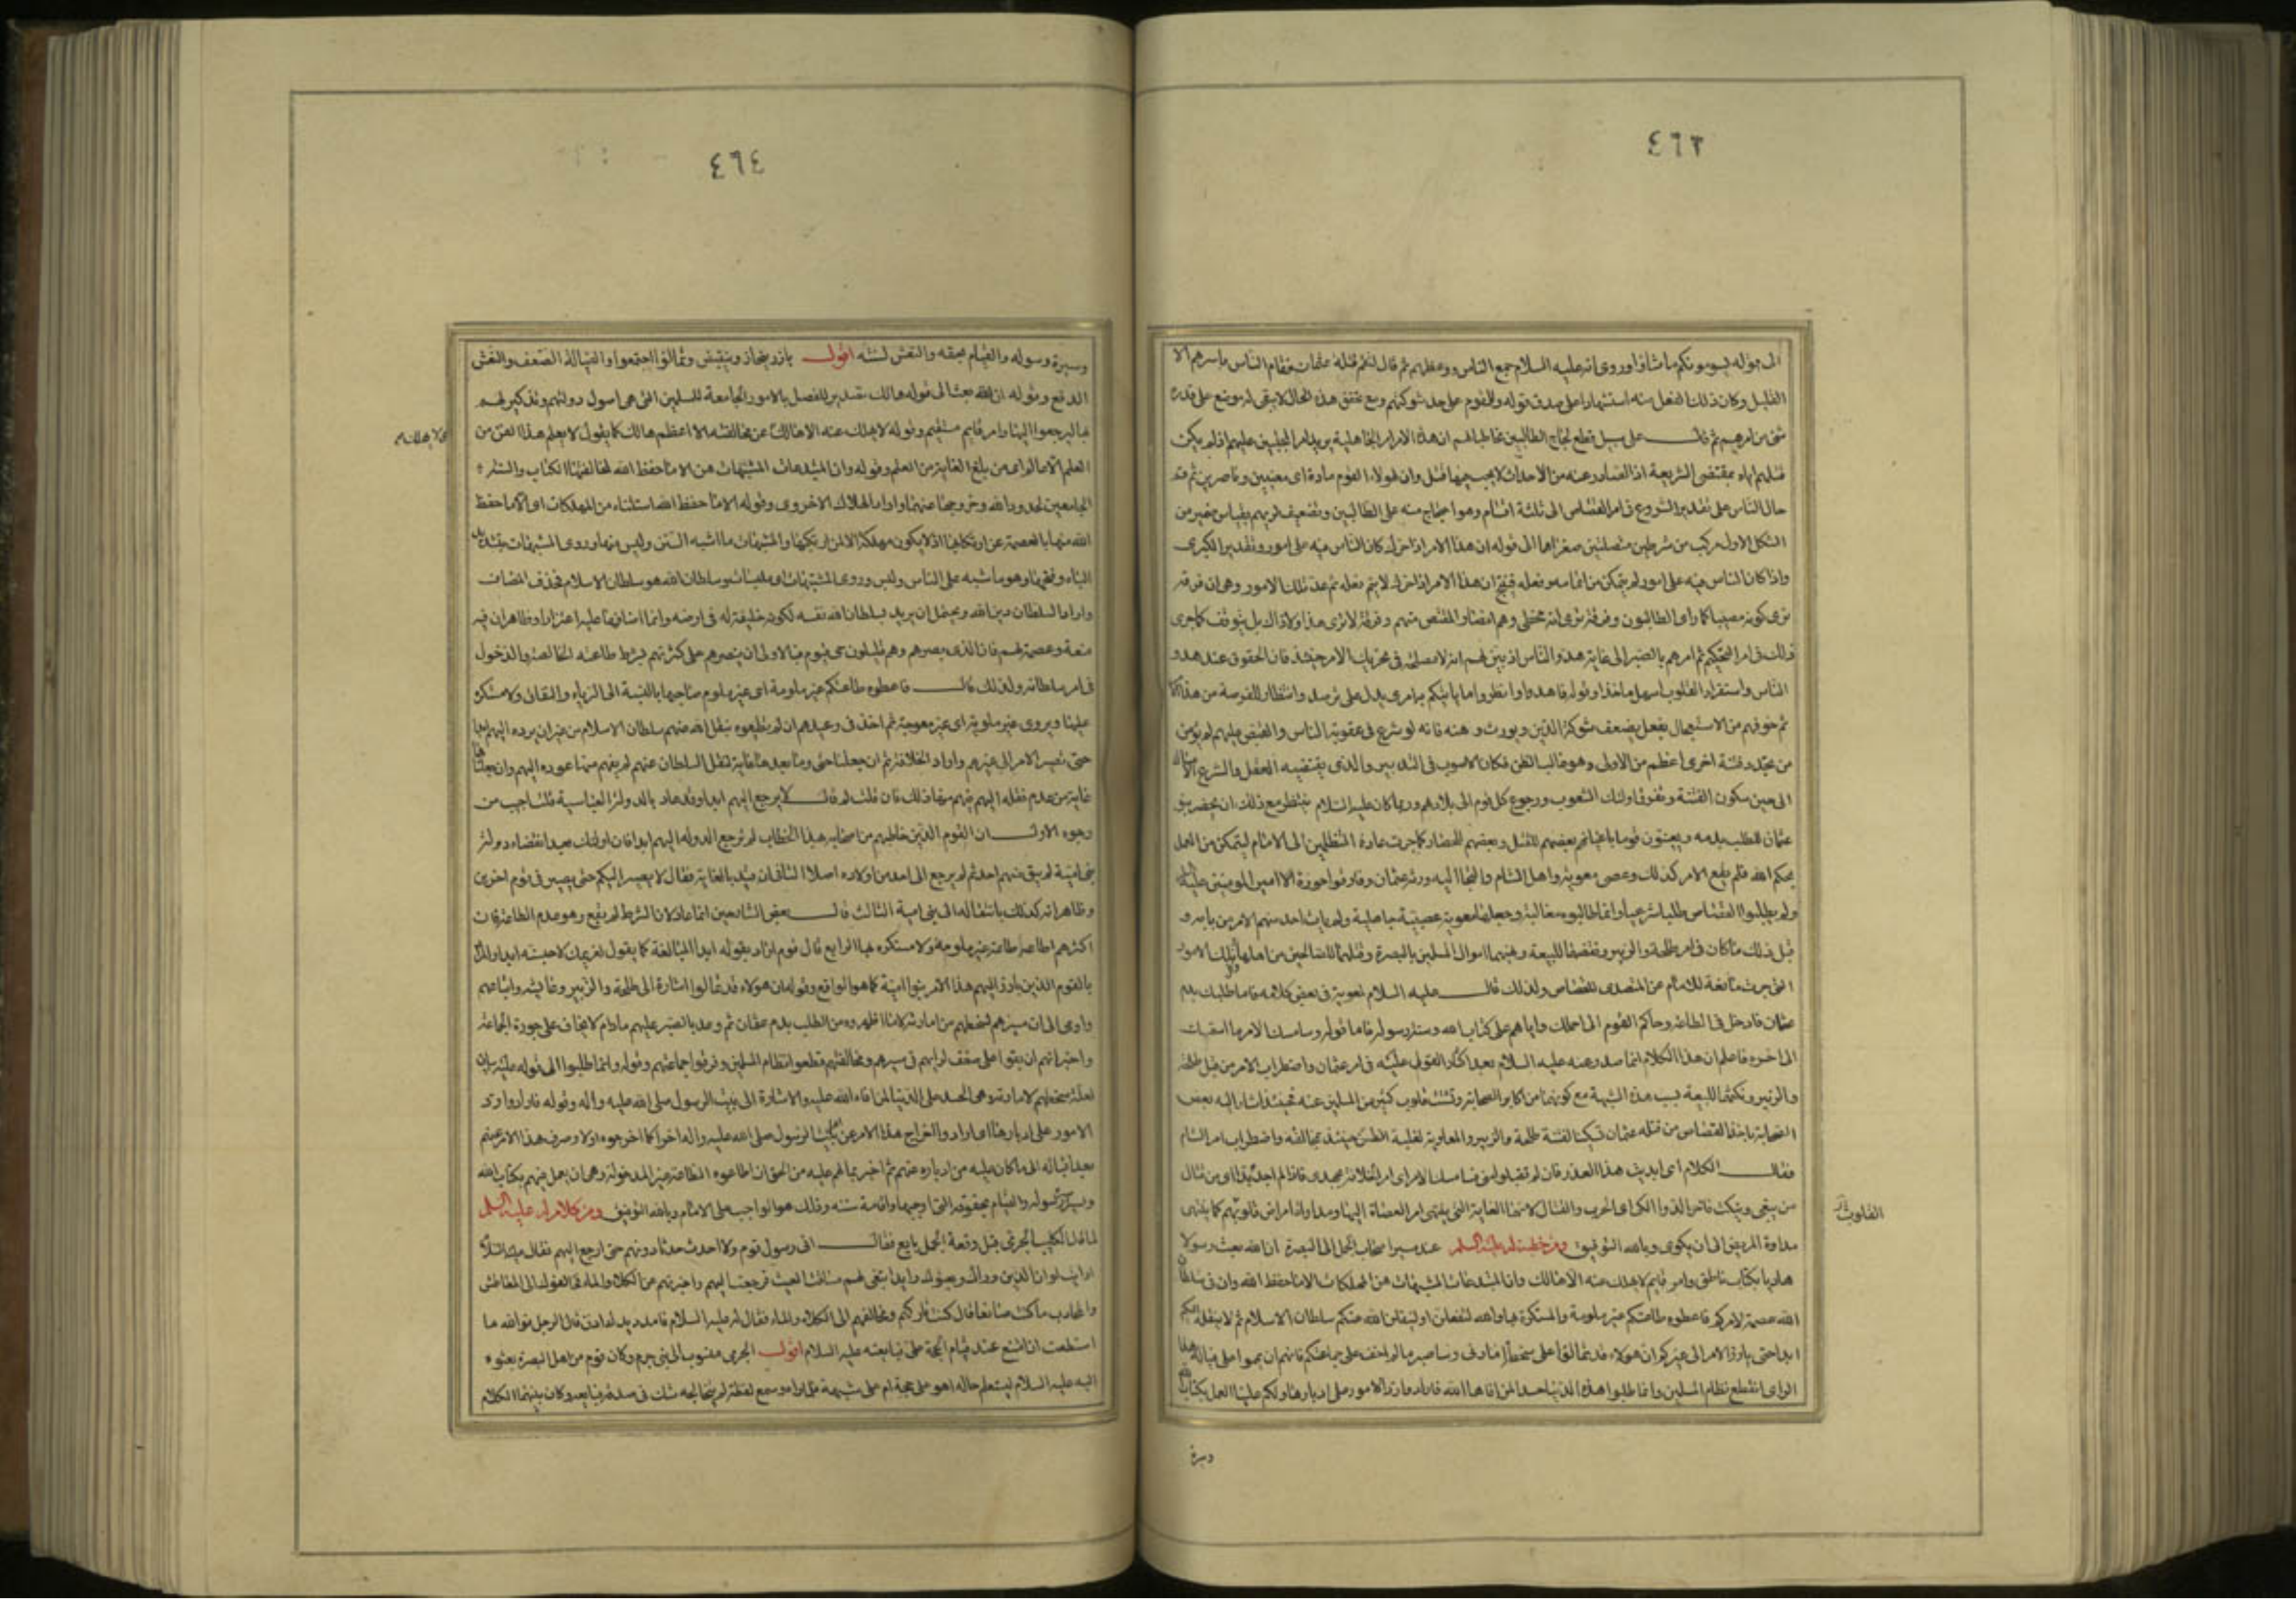 ٤٦٣
الى قوله يسومونكم ما شاؤا وروى انه عليه السلام جمع الناس ووعظهم ثم قال لتقم قتلة عثمان فقام الناس باسرهم الا
القليل وكان ذلك الفعل منه استشهادا على صدق قوله والقوم على حد شوكتهم ومع تحقق هذه الحال لا يبقى له موضع على قدرة
على سبيل قطع لجاج الطالبين مخاطبا لهم ان هذا الامر امر الجاهلية يريد امر المجلبين عليه اذ لم يكن
قتلهم اياه بمقتضى الشريعة اذ الصادر عنه من الاحداث لا يجب فيها قتل وان لهولاء القوم مادة اى معينين وناصرين ثم قسم
حال الناس على تقدير الشروع فى امر القصاص الى ثلثة اقسام وهو احتجاج منه على الطالبين وتضعيف لرايهم بقياس ضمير من
الشكل الاول مركب من شرطيتين متصلتين صغراهما الى قوله ان هذا الامر اذا حرك كان الناس منه على امور وتقدير الكبرى
واذا كان الناس منه على امور لم يتمكن من اتمامه وفعله فينتج ان هذا الامر اذا حرك لا يتم فعله ثم عد تلك الامور وهى ان فرقة
ترى كونه مصيبا كما راى الطالبون وفرقة ترى انه مخطى وهم انصار المقتص منهم وفرقة لا ترى هذا ولا ذاك بل يتوقف كما جرى
ذلك فى امر التحكيم ثم امرهم بالصبر الى غاية هدو الناس اذ بين لهم انه لا مصلحة فى تحريك الامر حينئذ فان الحقوق عند هدو
الناس واستقرار القلوب اسهل ماخذا وقوله فاهدوا وانظروا ماذا ياتيكم به امرى يدل على ترصد وانتظار للفرصة من هذا الامر
ثم خوفهم من الاستعجال بفعل يضعف شوكة الدين ويورث وهنه فانه لو شرع فى عقوبة الناس والقبض عليهم لم يؤمن
من تجدد فتنة اخرى اعظم من الاولى وهو غالب الظن فكان الاصوب فى التدبير والذى يقتضيه العقل والشرع الامساك
الى حين سكون الفتنة وتفرق اولئك الشعوب ورجوع كل قوم الى بلادهم وربما كان عليه السلام ينتظر مع ذلك ان يحضر بنو
عثمان للطلب بدمه ويعينون قوما باعيانهم بعضهم للقتل وبعضهم للحصار كما جرت عادة المتظلمين الى الامام ليتمكن من العمل
بحكم الله فلم يقع الامر كذلك وعصى معوية واهل الشام والتجا اليه ورثة عثمان وفارقوا حوزة امير المومنين عليه السلم
ولم يطلبوا القصاص طلبا شرعيا وانما طلبوه مغالبة وجعلها معوية عصبية جاهلية ولم يات احد منهم الامر من بابه و
قبل ذلك ما كان فى امر طلحة والزبير ونقضهما للبيعة ونهبهما اموال المسلمين بالبصرة وقتلهما للصالحين من اهلها وتلك الامور
التى جرت مانعة للامام عن التصدى للقصاص ولذلك قال عليه السلام لمعوية فى بعض كلامه فاما طلبك بدم
عثمان فادخل فى الطاعة وحاكم القوم الى احملك واياهم على كتاب الله وسنة رسوله فاما قوله وسامسك الامر ما استمسك
الى اخره فاعلم ان هذا الكلام انما صدر عنه عليه السلام بعد اكثار القول عليه فى امر عثمان واضطراب الامر من قبل طلحة
والزبير ونكثهما للبيعة بسبب هذه الشبهة مع كونهما من اكابر الصحابة وتشتت قلوب كثير من المسلمين عنه فحينئذ اشار اليه بعض
الصحابة باخذ القصاص من قتلة عثمان تسكينا لفتنة طلحة والزبير والمعاوية لغلبة الظن حينئذ بمخالفته واضطراب امر الشام
فقال الكلام
مداوة المريض الى ان يكوى وبالله التوفيق ومن خطبة له عليه السلم عند مسير اصحاب الجمل الى البصرة ان الله بعث رسولا
هاديا بكتاب ناطق وامر قايم لا يهلك عنه الا هالك وان المبتدعات المشبهات هن المهلكات الا ما حفظ الله وان فى سلطان
الله عصمة لامركم فاعطوه طاعتكم غير ملومة ولا مستكره بها والله لتفعلن او لينقلن الله عنكم سلطان الاسلام ثم لا ينقله اليكم
ابدا حتى يارز الامر الى غيركم ان هولاء قد تمالؤا على سخطة امارتى وساصبر ما لم اخف على جماعتكم فانهم ان تمموا على فيالة هذا
الراى انقطع نظام المسلمين وانما طلبوا هذه الدنيا حسدا لمن افاءها الله فارادوا رد الامور على ادبارها ولكم علينا العمل بكتاب الله
القلوب
وسيرة
٤٦٤
وسيرة رسوله والقيام بحقه والنعش لسنته اقول يارز ينحاز وينقبض وتمالؤا اجتمعوا والفيالة الضعف والنعش
الرفع وقوله ان الله بعث الى قوله هالك تقدير للفصل بالامور الجامعة للمسلمين التى هى اصول دولتهم وتذكير لهم
بها ليرجعوا اليها وامر قايم مستقيم وقوله لا يهلك عنه الا هالك عن مخالفته الا اعظم هالك كما يقول لا يعلم هذا الفن من
العلم الا عالم اى من بلغ الغاية من العلم وقوله وان المبتدعات المشبهات هن الا ما حفظ الله لمخالفتها الكتاب والسنة
الجامعين لحدود الله وخروجها عنهما واراد الهلاك الاخروى وقوله الا ما حفظ الله استثناء من المهلكات اى الا ما حفظ
الله منها بالعصمة عن ارتكابها اذ لا يكون مهلكة الا لمن ارتكبها والمشبهات ما اشبه السنن وليس منها وروى المشبهات بتشديد
الباء وفتحها وهو ما شبه على الناس ولبس وروى المشتبهات اى ملتبسات وسلطان الله هو سلطان الاسلام فحذف المضاف
واراد السلطان دين الله ويحتمل ان يريد بسلطان الله نفسه لكونه خليفة له فى ارضه وانما اضافها عليه اعتزازا وظاهر ان فيه
منعة وعصمة لهم فان الذى نصرهم وهم قليلون حى قيوم فبالاولى ان ينصرهم على كثرتهم بشرط طاعته الخالصة والدخول
فى امر سلطانه ولذلك قال فاعطوه طاعتكم غير ملومة اى غير ملوم صاحبها بالنسبة الى الرياء والنفاق ولا مستكره
عليها ويروى غير ملوية اى غير معوجة ثم اخذ فى وعيدهم ان لم يطيعوه بنقل الله عنهم سلطان الاسلام من غير ان يرده اليهم ابدا
حتى تصير الامر الى غيرهم واراد الخلافة ثم ان جعلنا حتى وما بعدها غاية لنقل السلطان عنهم لم يفهم منها عوده اليهم وان جعلناها
غاية من عدم نقله اليهم فهم منه ذلك فان قلت لم قال لا يرجع اليهم ابدا وقد عاد بالدولة العباسية قلت اجيب من
وجوه الاول ان القوم الذين خاطبهم من اصحابه بهذا الخطاب لم ترجع الدولة اليهم ابدا فان اولئك بعد انقضاء دولة
بنى امية لم يبق منهم احد ثم لم يرجع الى احد من اولاده اصلا الثانى انه قيد بالغاية فقال لا يصير اليكم حتى يصير فى قوم اخرين
وظاهر انه كذلك بانتقاله الى بنى امية الثالث قال بعض الشارحين انما عاد لان الشرط لم يقع وهو عدم الطاعة فان
اكثرهم اطاعه طاعة غير ملومة ولا مستكره بها الرابع قال قوم اراد بقوله ابدا المبالغة كما يقول لغريمك لاحبسنك ابدا والمراد
بالقوم الذين يارز اليهم هذا الامر بنوا امية كما هو الواقع وقوله ان هولاء قد تمالؤا اشارة الى طلحة والزبير وعايشة واتباعهم
واومى الى ان مسيرهم لسخطهم من امارته لا ما اظهروه من الطلب بدم عثمان ثم وعد بالصبر عليهم ما دام لا يخاف على حوزة الجماعة
واخبر انهم ان بقوا على ضعف رايهم فى مسيرهم ومخالفتهم قطعوا انتظام المسلمين وفرقوا جماعتهم وقوله وانما طلبوا الى قوله عليه بيان
لعلة سخطهم لامارته وهى الحسد على الدنيا لمن افاء الله عليه والاشارة الى بيت الرسول صلى الله عليه واله وقوله فارادوا رد
الامور على ادبارها اى ارادوا اخراج هذا الامر عن اهل بيت الرسول صلى الله عليه واله اخرا كما اخرجوه اولا وصرف هذا الامر عنهم
بعد اقباله الى ما كان عليه من ادباره عنهم ثم اخبر بما لهم عليه من الحق ان اطاعوه الطاعة غير المدخولة وهى ان يعمل فيهم بكتاب الله
وسيرة رسوله والقيام بحقوقه التى اوجبها واقامة سنته وذلك هو الواجب على الامام وبالله التوفيق ومن كلام له عليه السلم
لما قال لكليب الجرمى قبل وقعة الجمل بايع فقال انى رسول قوم ولا احدث حدثا دونهم حتى ارجع اليهم فقال عليه السلام
ارايت لو ان الذين وراك وبعثوك رايدا تبتغى لهم مساقط الغيث فرجعت اليهم واخبرتهم عن الكلاء والماء فخالفوك الى المعاطش
والمجادب ما كنت صانعا قال كنت تاركهم ومخالفهم الى الكلاء والماء فقال له عليه السلام فامدد يدك اذن قال الرجل فوالله ما
استطعت ان امتنع عند قيام الحجة على فبايعته عليه السلام اقول الجرمى منسوب الى بنى جرم وكان قوم من اهل البصرة بعثوه
اليه عليه السلام ليستعلم حاله اهو على حجة ام على شبهة فلما راه وسمع لفظه لم يتخالجه شك فى صدقه فبايعه وكان بينهما الكلام